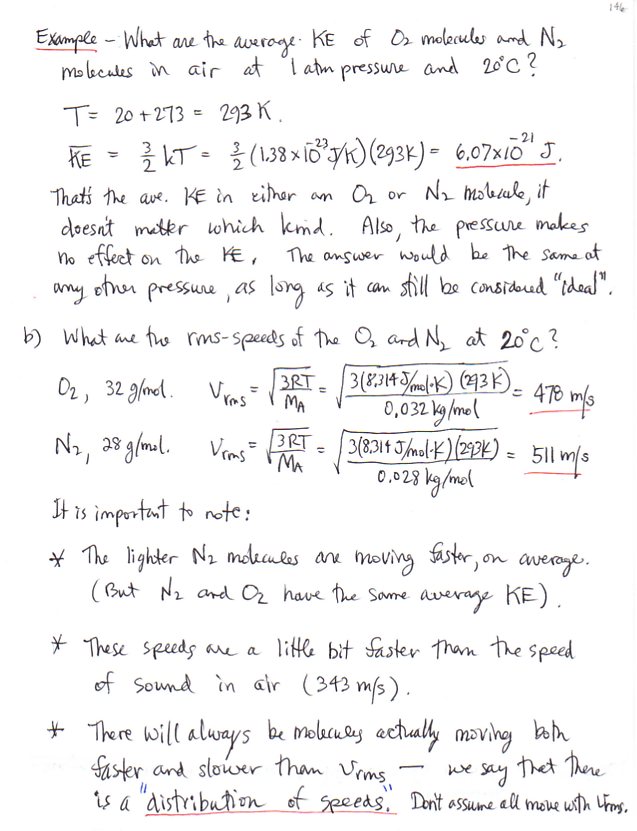 146
Example - What are the average KE of O₂ molecules and N₂
molecules in air at 1 atm pressure and 20°C?
T = 20 + 273 = 293 K.
K̅E̅ = 3/2 kT = 3/2 (1.38×10⁻²³ J/K)(293K) = 6.07×10⁻²¹ J.
That's the ave. KE in either an O₂ or N₂ molecule, it
doesn't matter which kind. Also, the pressure makes
no effect on the KE. The answer would be the same at
any other pressure, as long as it can still be considered "ideal".
b) What are the rms-speeds of the O₂ and N₂ at 20°C?
O₂, 32 g/mol. Vrms = √(3RT/MA) = √(3(8.314 J/mol·K)(293 K)/0.032 kg/mol) = 478 m/s
N₂, 28 g/mol. Vrms = √(3RT/MA) = √(3(8.314 J/mol·K)(293K)/0.028 kg/mol) = 511 m/s
It is important to note:
* The lighter N₂ molecules are moving faster, on average.
(But N₂ and O₂ have the same average KE).
* These speeds are a little bit faster than the speed
of sound in air (343 m/s).
* There will always be molecules actually moving both
faster and slower than Vrms — we say that there
is a "distribution of speeds." Don't assume all move with Vrms.